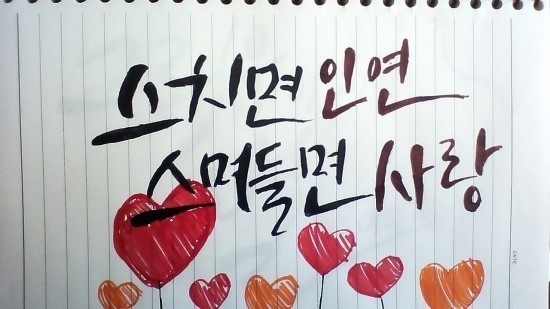 스치면 인연
스며들면 사랑
DATE